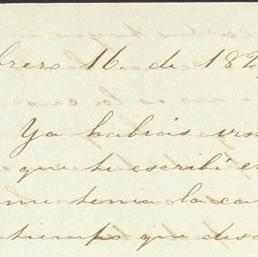 brero 16. de 18
Ya habias
que te escribí
me tenia la ca
tiempo que desc